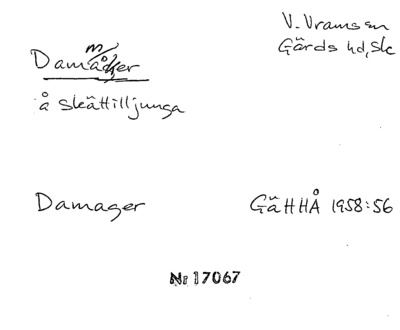 V. Vram sn
Gärds hd, Sk
Damåker
å Skättilljunga
Damager
GäHHÅ 1958:56
Nr 17067